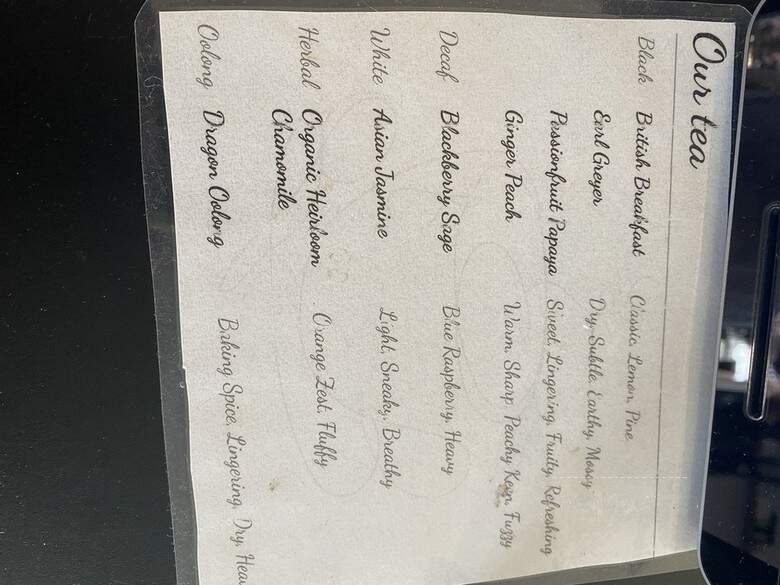 Our tea
Black British Breakfast Classic, Lemon, Pine
Earl Greyer Dry, Subtle, Earthy, Mossy
Passionfruit Papaya Sweet, Lingering, Fruity, Refreshing
Ginger Peach Warm, Sharp, Peachy Keen, Fuzzy
Decaf Blackberry Sage Blue Raspberry, Heavy
White Asian Jasmine Light, Sneaky, Breathy
Herbal Organic Heirloom Orange Zest, Fluffy
Chamomile
Oolong Dragon Oolong Baking Spice, Lingering, Dry,